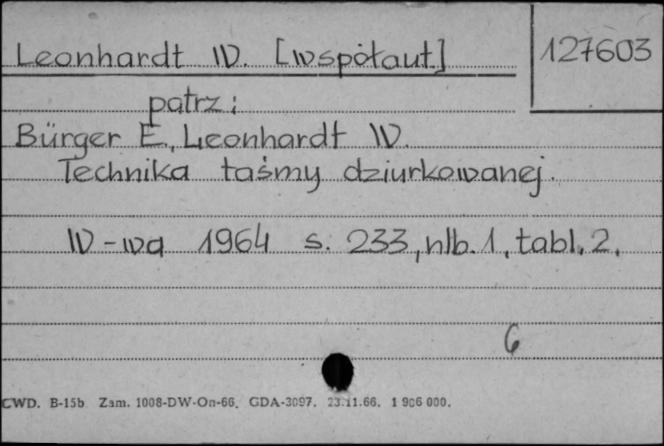 Leonhardt W. [współaut.]
127603
patrz:
Bürger E., Leonhardt W.
Technika taśmy dziurkowanej.
W-wa 1964 s. 233, nlb. 1, tabl. 2.
6
CWD. B-15b Zam. 1008-DW-On-66. GDA-3097. 23.11.66. 1 906 000.